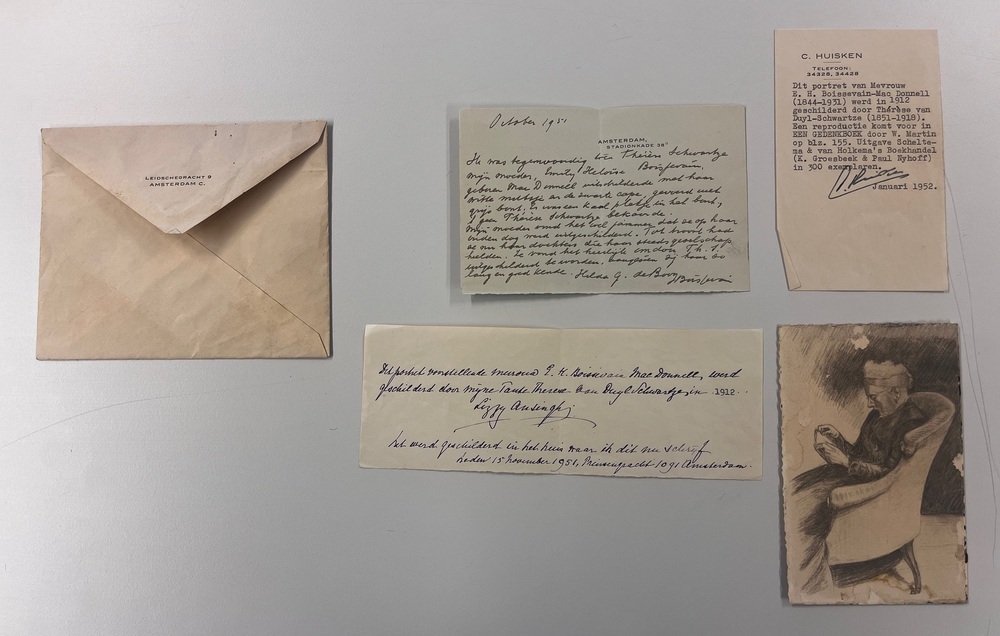 LEIDSCHEGRACHT 9
AMSTERDAM C.
October 1951
AMSTERDAM,
STADIONKADE 38
Ik was tegenwoordig toen Thérèse Schwartze
mijn moeder, Emily Héloïse Boissevain
geboren Mac Donnell uitschilderde met haar
witte mutsje en de zwarte cape, gevoerd met
grijs bont. Er waren kaal plekje in het bont,
Thérèse Schwartze
mijn moeder vond het wel jammer dat ze op haar
ouden dag werd uitgeschilderd. Tot troost had
ze om haar dochters die haar steeds gezelschap
hielden. Ze vond het heerlijk om door Th. S.
uitgeschilderd te worden, aangezien zij haar zo
lang en goed kende. Hilda G. de Booy
Boissevain
C. HUISKEN
TELEFOON:
34328, 34428
Dit portret van Mevrouw
E. H. Boissevain-Mac Donnell
(1844-1931) werd in 1912
geschilderd door Thérèse van
Duyl-Schwartze (1851-1918).
Een reproductie komt voor in
EEN GEDENKBOEK door W. Martin
op blz. 155. Uitgave Schelte-
ma & van Holkema's Boekhandel
(K. Groesbeek & Paul Nyhoff)
in 300 exemplaren.
Januari 1952.
Dit portret voorstellende mevrouw E. H. Boissevain Mac Donnell, werd
geschilderd door mijne Tante Therese van Duyl Schwartze in 1912.
Lizzy Ansingh
het werd geschilderd in het huis waar ik dit nu schrijf
heden 15 November 1951, Prinsengracht 1091 Amsterdam.